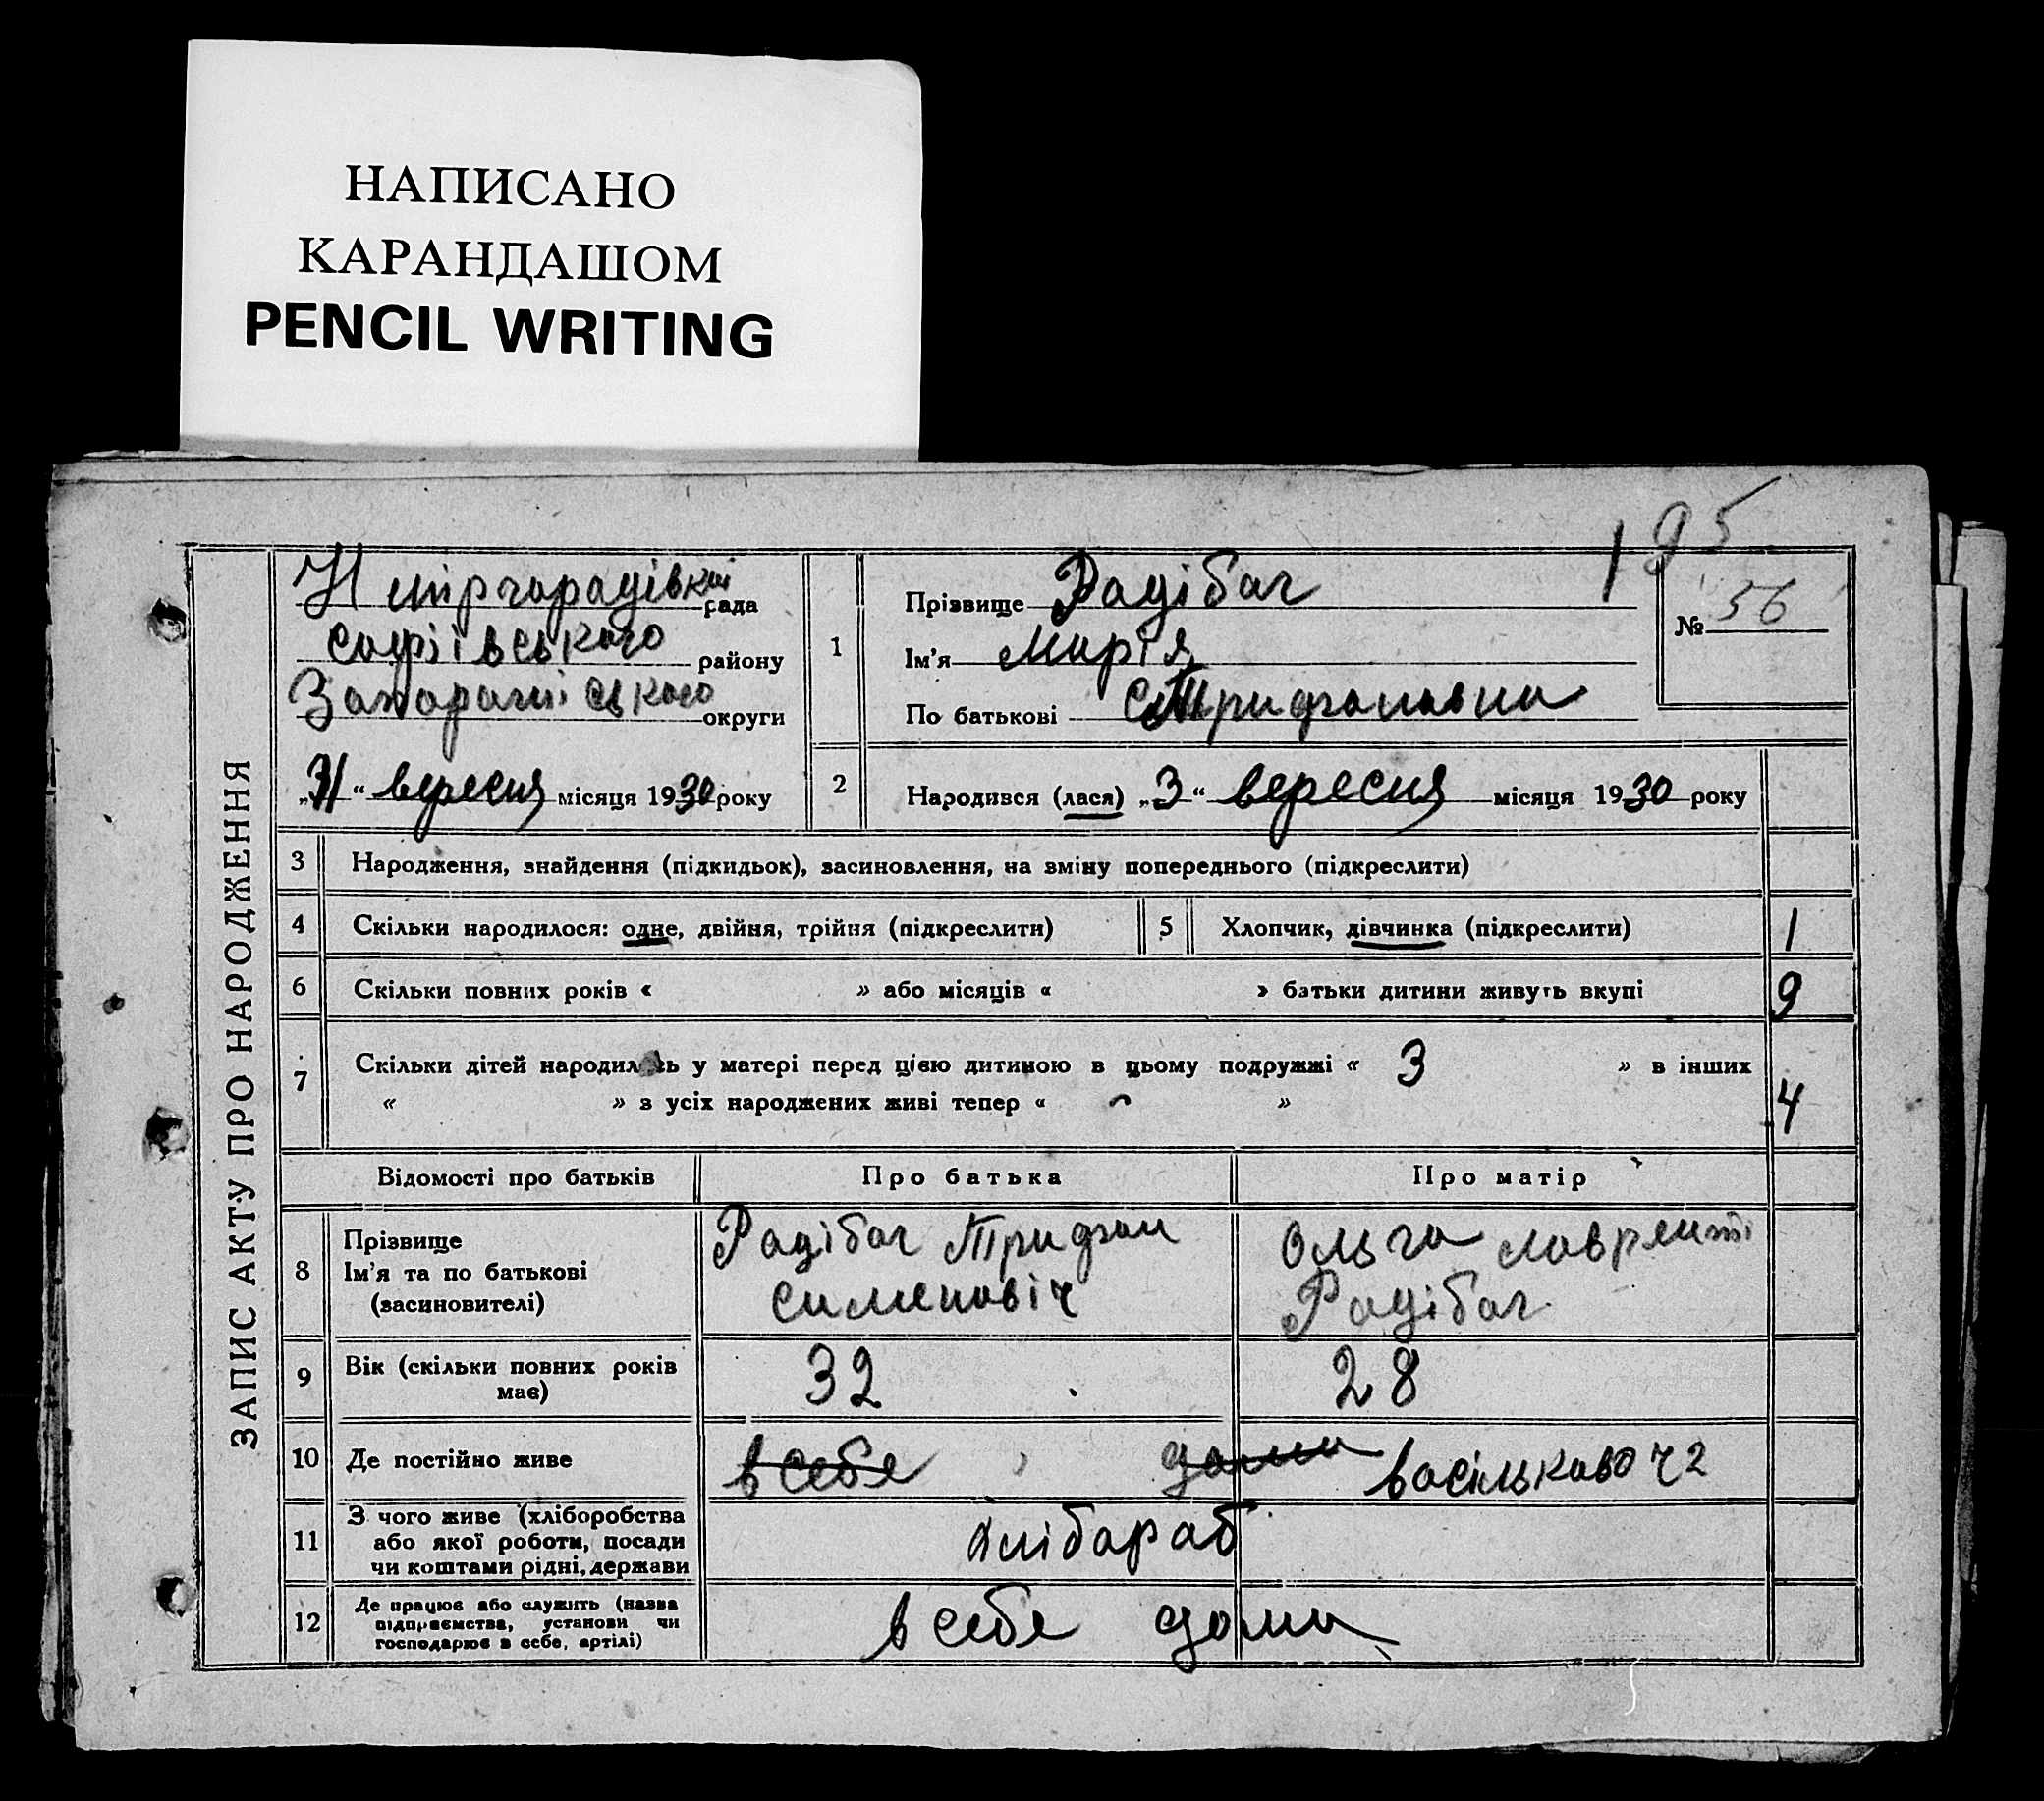 НАПИСАНО
КАРАНДАШОМ
PENCIL WRITING
195
ЗАПИС АКТУ ПРО НАРОДЖЕННЯ
рада
софіївського району
округи
„31“ вересня місяця 1930 року
1
Прізвище Радібог
Ім'я Марія
По батькові Трифоновна
№ 56
2 Народився (лася) „3“ вересня місяця 1930 року
3 Народження, знайдення (підкидьок), засиновлення, на зміну попереднього (підкреслити)
4 Скільки народилося: одне, двійня, трійня (підкреслити) 5 Хлопчик, дівчинка (підкреслити) 1
6 Скільки повних років « » або місяців « » батьки дитини живуть вкупі 9
7 Скільки дітей народилось у матері перед цією дитиною в цьому подружжі « 3 » в інших
« » з усіх народжених живі тепер « » 4
Відомості про батьків Про батька Про матір
8 Прізвище
Ім'я та по батькові
(засиновителі)
Радібог Трифон
Сименовіч
Ольга
Радібог
9 Вік (скільки повних років
має)
32 28
10 Де постійно живе в себе дома
11 З чого живе (хліборобства
або якої роботи, посади
чи коштами рідні, держави
хлібараб
12 Де працює або служить (назва
підприємства, установи чи
господарює в себе, артілі)
в себе дома